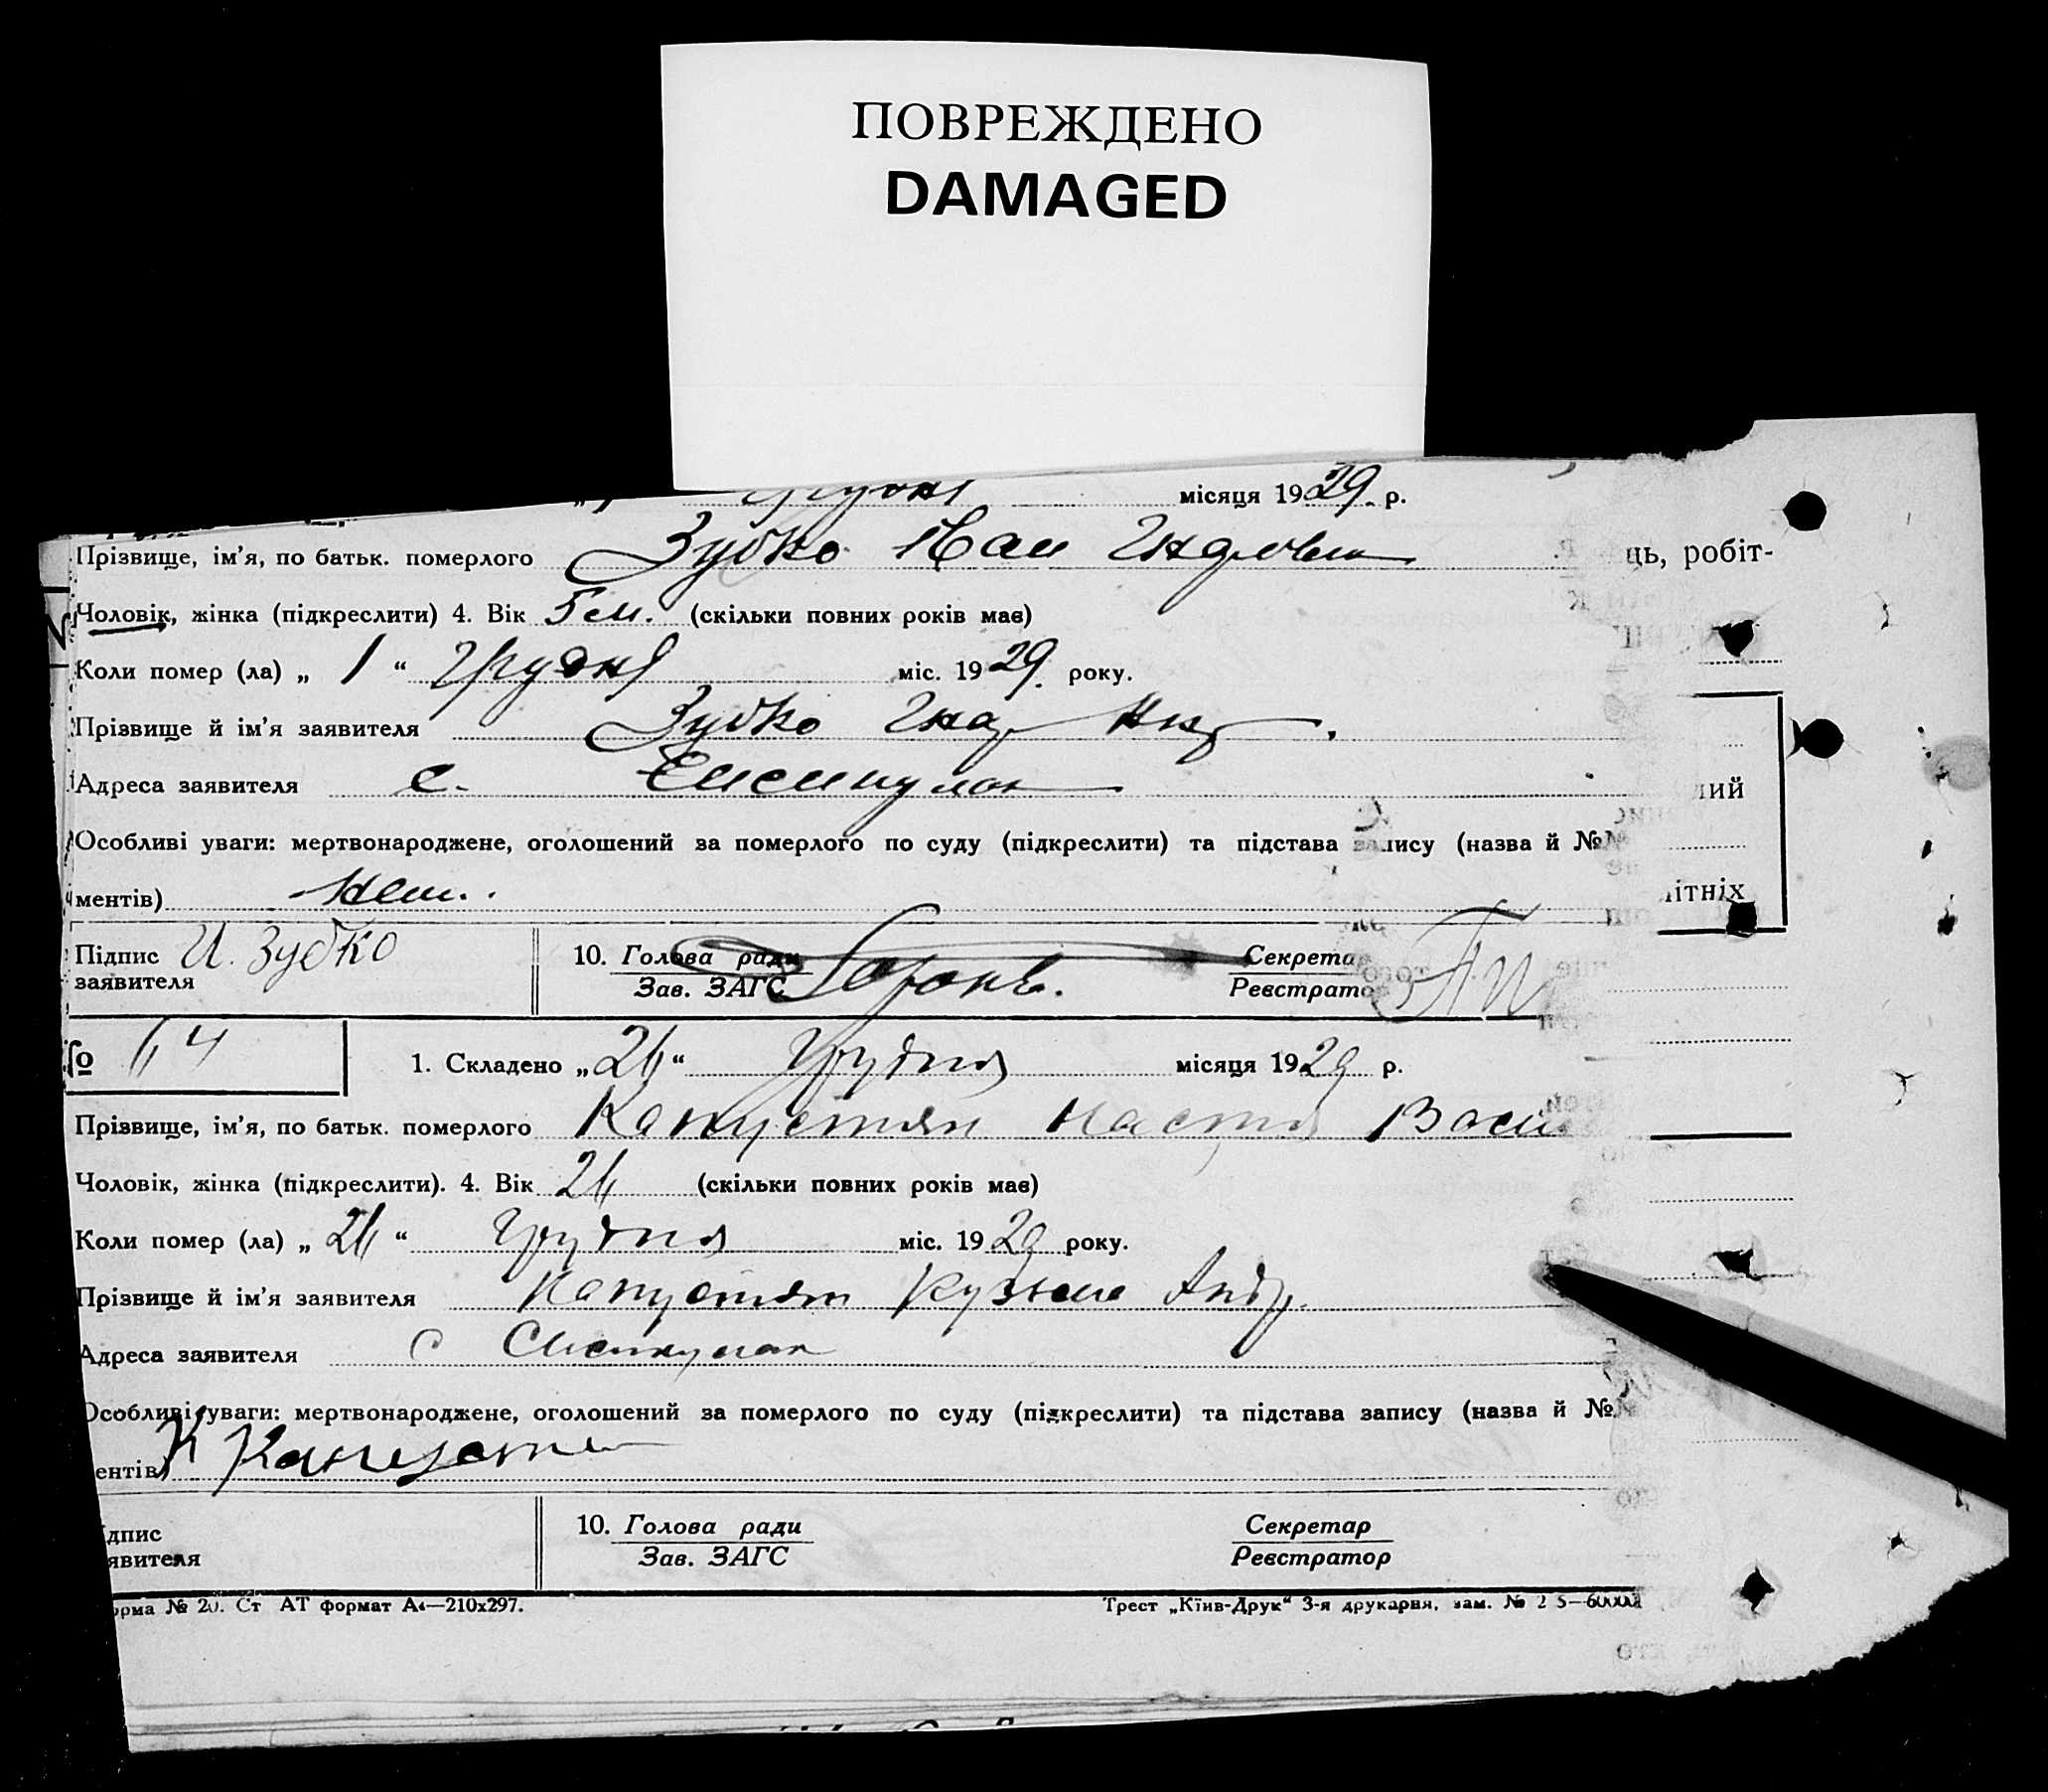 ПОВРЕЖДЕНО
DAMAGED
місяця 1929. р.
Прізвище, ім'я, по батьк. померлого Зубко Иван
ць, робіт-
Чоловік, жінка (підкреслити) 4. Вік 5 м. (скільки повних років має)
Коли помер (ла) „ 1 “ Грудня міс. 1929. року.
Прізвище й ім'я заявителя Зубко
Адреса заявителя с.
лий
Особливі уваги: мертвонароджене, оголошений за померлого по суду (підкреслити) та підстава запису (назва й №№
ментів) Нет.
ітніх
Підпис заявителя И. Зубко
10. Голова ради
Зав. ЗАГС
Секретар
Реєстратор
№ 64
1. Складено „26“ Грудня місяця 1929 р.
Прізвище, ім'я, по батьк. померлого Капустян Настя Васи
Чоловік, жінка (підкреслити). 4. Вік 26 (скільки повних років має)
Коли помер (ла) „ 26 “ Грудня міс. 1929 року.
Прізвище й ім'я заявителя Капустян Кузьма Андр.
Адреса заявителя с
Особливі уваги: мертвонароджене, оголошений за померлого по суду (підкреслити) та підстава запису (назва й №
ентів) К Капустян
ідпис
явителя
10. Голова ради
Зав. ЗАГС
Секретар
Реєстратор
орма № 20. Ст АТ формат А4—210х297.
Трест „Київ-Друк“ 3-я друкарня, зам. №